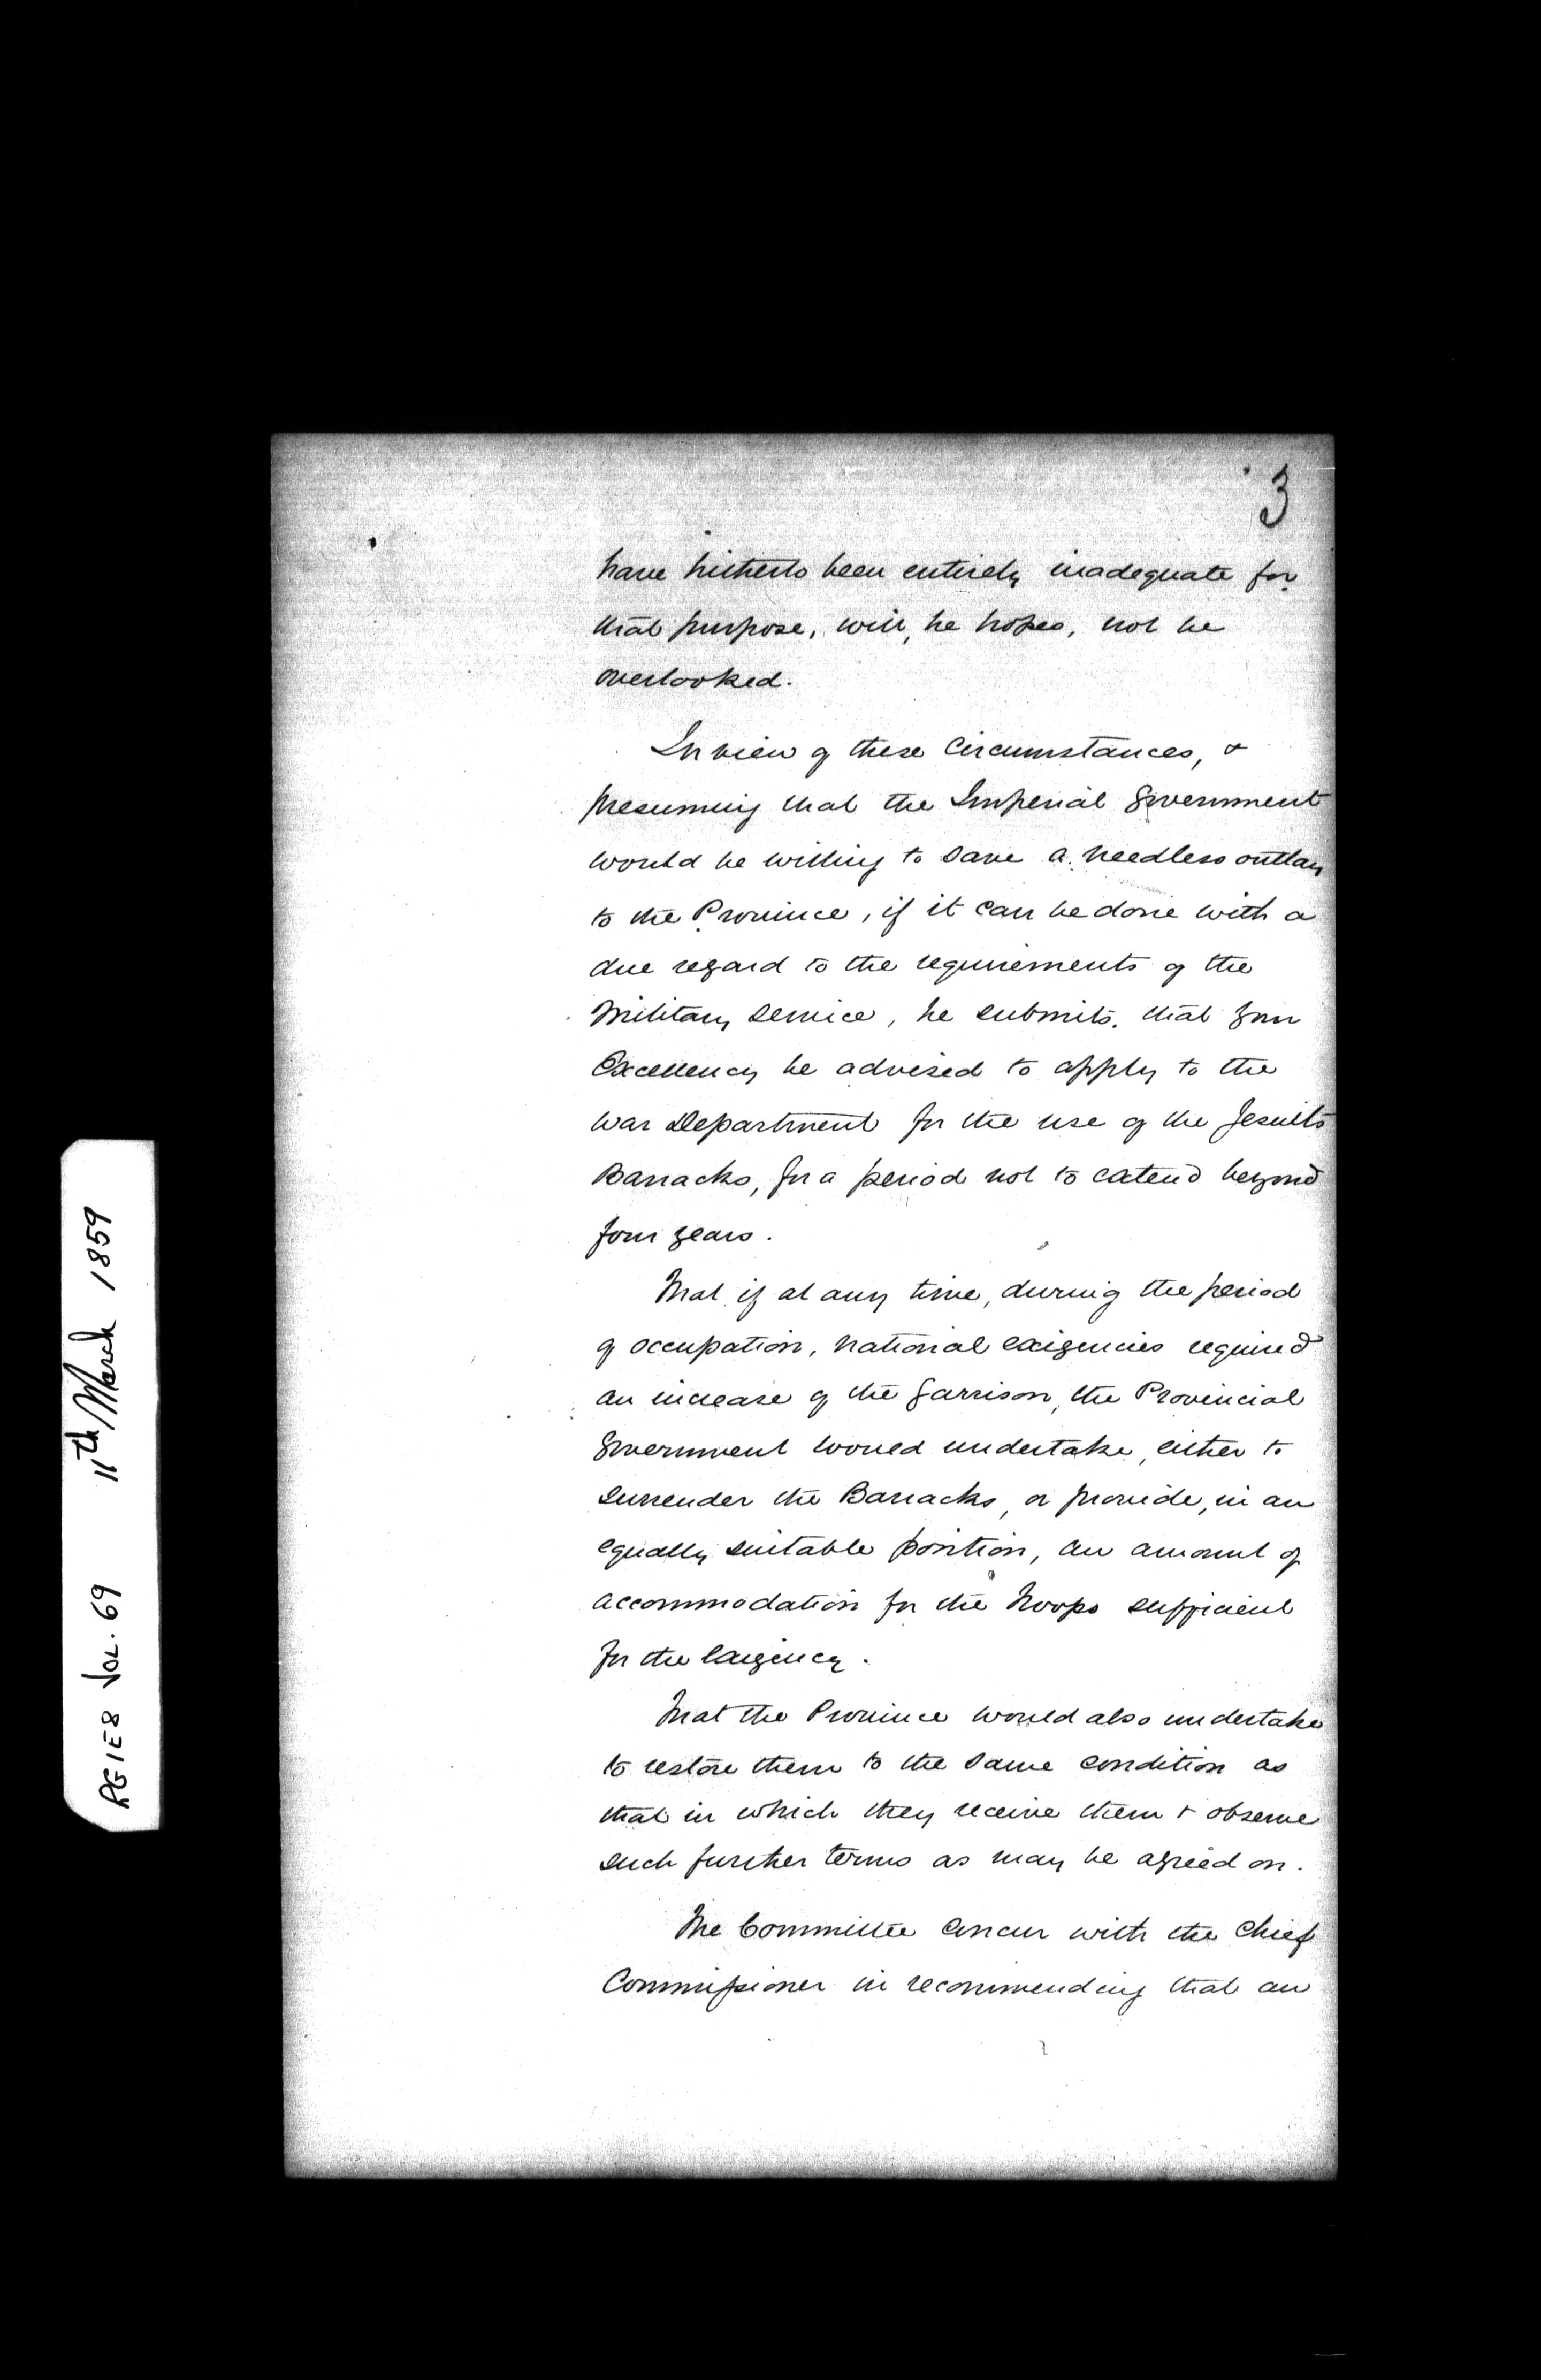 3
have hitherto been entirely inadequate for
that purpose, will, he hopes, not be
overlooked.
In view of these circumstances, &
presuming that the Imperial Government
would be willing to save a needless outlay
to the Province, if it can be done with a
due regard to the requirements of the
Military Service, he submits, that Your
Excellency be advised to apply to the
War Department for the use of the Jesuits
Barracks, for a period not to extend beyond
four years.
That if at any time, during the period
of occupation, national exigencies required
an increase of the Garrison, the Provincial
Government would undertake, either to
surrender the Barracks, or provide, in an
equally suitable position, an amount of
accommodation for the Troops sufficient
for the exigency.
That the Province would also undertake
to restore them to the same condition as
that in which they receive them & observe
such further terms as may be agreed on.
The Committee concur with the Chief
Commissioner in recommending that an
RG1E8 VOL. 69 11th March 1859